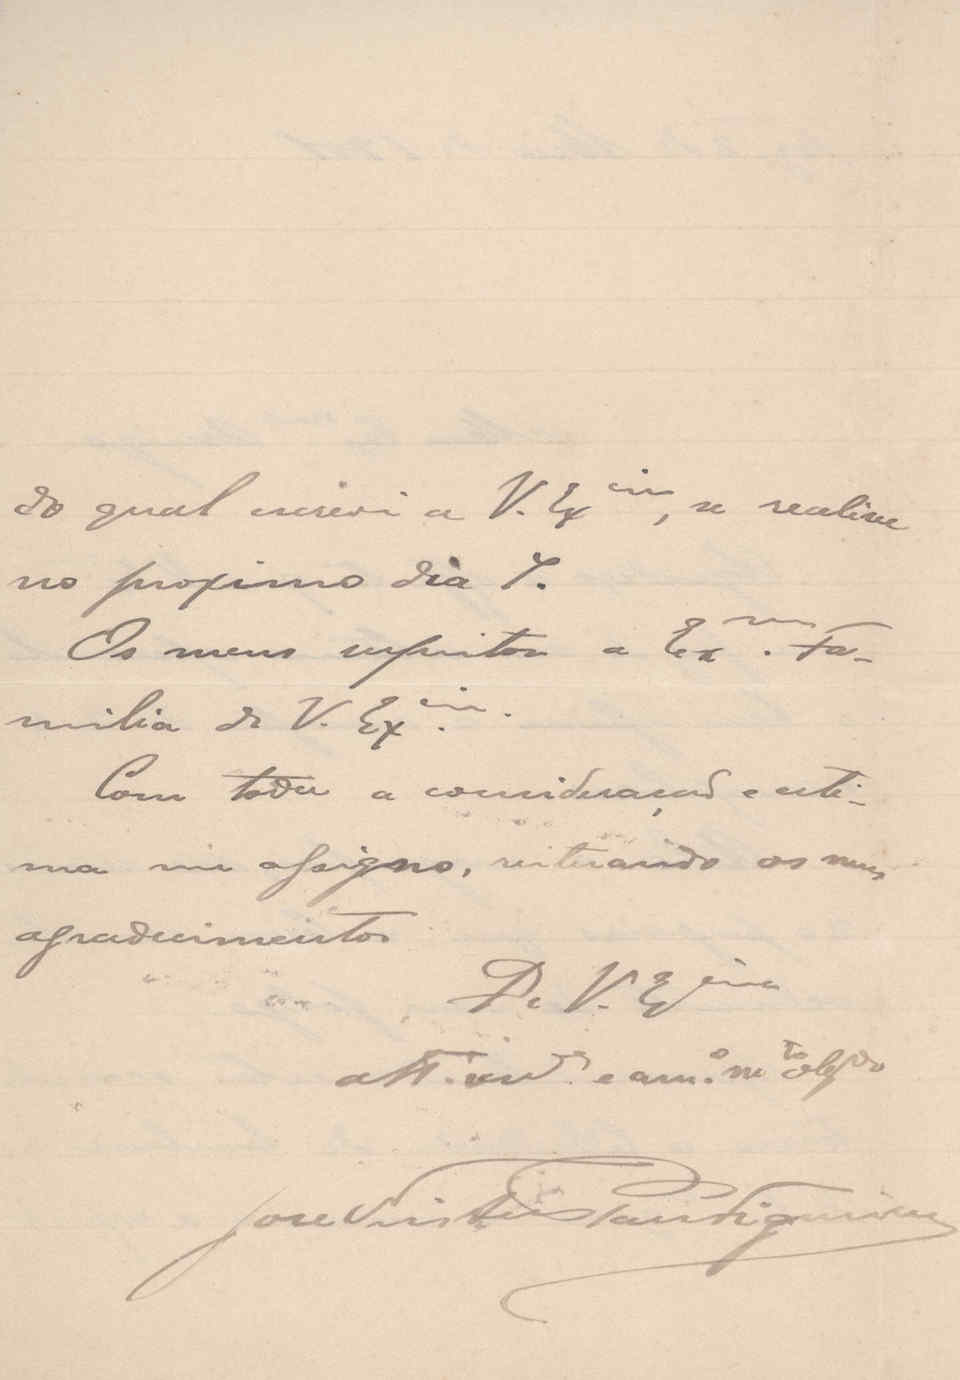 do qual escrevi a V. Ex.cia, se realise
no proximo dia 7.
Os meus respeitos a Ex.ma Fa-
milia de V. Ex.cia.
Com toda a consideração e esti-
ma me assigno, reiterando os meus
agradecimentos
De V. Ex.cia
att.o ven.or e am.o m.to obg.do
José